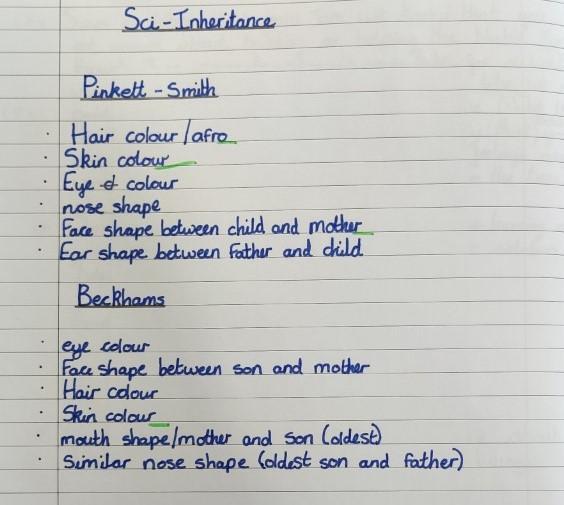 Sci-Inheritance
Pinkett - Smith
· Hair colour/afro
· Skin colour
· Eye & colour
· nose shape
· Face shape between child and mother
· Ear shape between father and child
Beckhams
· eye colour
· Face shape between son and mother
· Hair colour
· Skin colour
· mouth shape/mother and son (oldest)
· Similar nose shape (oldest son and father)